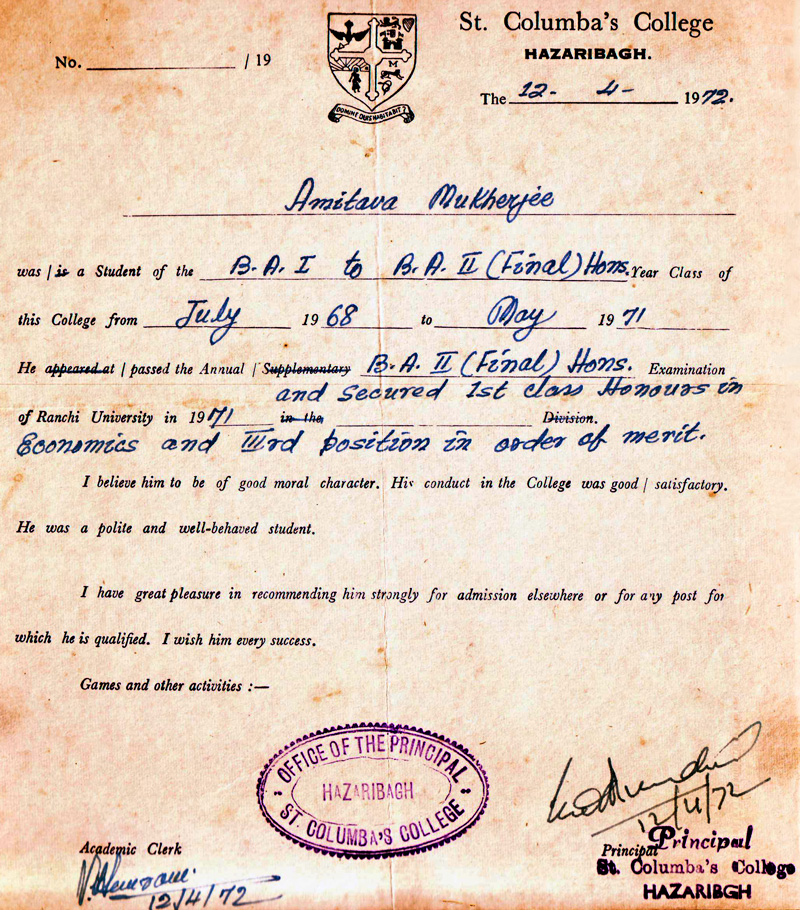 St. Columba's College
HAZARIBAGH.
No. / 19
The 12- 4- 1972.
DOMINE QUIS HABITABIT?
Amitava Mukherjee
was / is a Student of the B.A. I to B.A. II (Final) Hons. Year Class of
this College from July 1968 to May 1971
He appeared at / passed the Annual / Supplementary B.A. II (Final) Hons. Examination
and secured 1st class Honours in
of Ranchi University in 1971 in the Division.
Economics and IIIrd position in order of merit.
I believe him to be of good moral character. His conduct in the College was good / satisfactory.
He was a polite and well-behaved student.
I have great pleasure in recommending him strongly for admission elsewhere or for any post for
which he is qualified. I wish him every success.
Games and other activities :—
OFFICE OF THE PRINCIPAL
HAZARIBAGH
ST. COLUMBA'S COLLEGE
12/4/72
Academic Clerk
12/4/72
Principal
Principal
St. Columba's College
HAZARIBGH